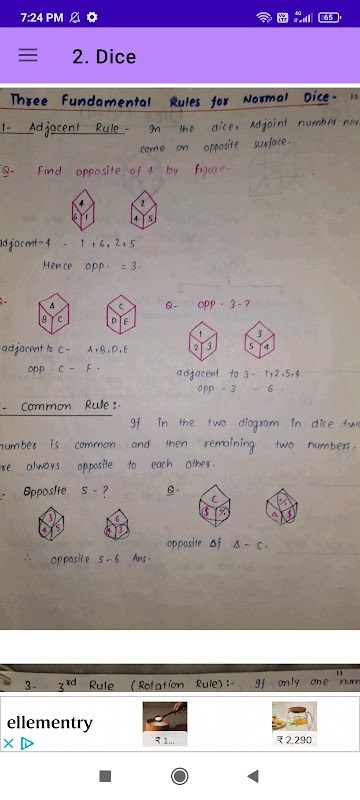 7:24 PM
65
2. Dice
Three Fundamental Rules for Normal Dice-
1- Adjacent Rule - In the dice, Adjoint number
come on opposite surface.
Q- Find opposite of 4 by figure-
4
1
2
4 5
adjacent-4 - 1, 6, 2, 5
Hence opp. = 3.
A
B C
C
D E
Q- opp. 3-?
adjacent to C- A,B,D,E
opp C - F.
1
2 3
3
5 4
adjacent to 3- 1,2,5,4
opp - 3 - 6.
- Common Rule:-
If in the two diagram in dice two
number is common and then remaining two numbers.
are always opposite to each other.
- Opposite 5-? Q-
3
4 5
6
4 3
C
$ %
%
Δ $
opposite of Δ - C.
∴ opposite 5-6 Ans-
11
3- 3rd Rule (Rotation Rule):- If only one num
ellementry
₹ 1...
₹ 2,290